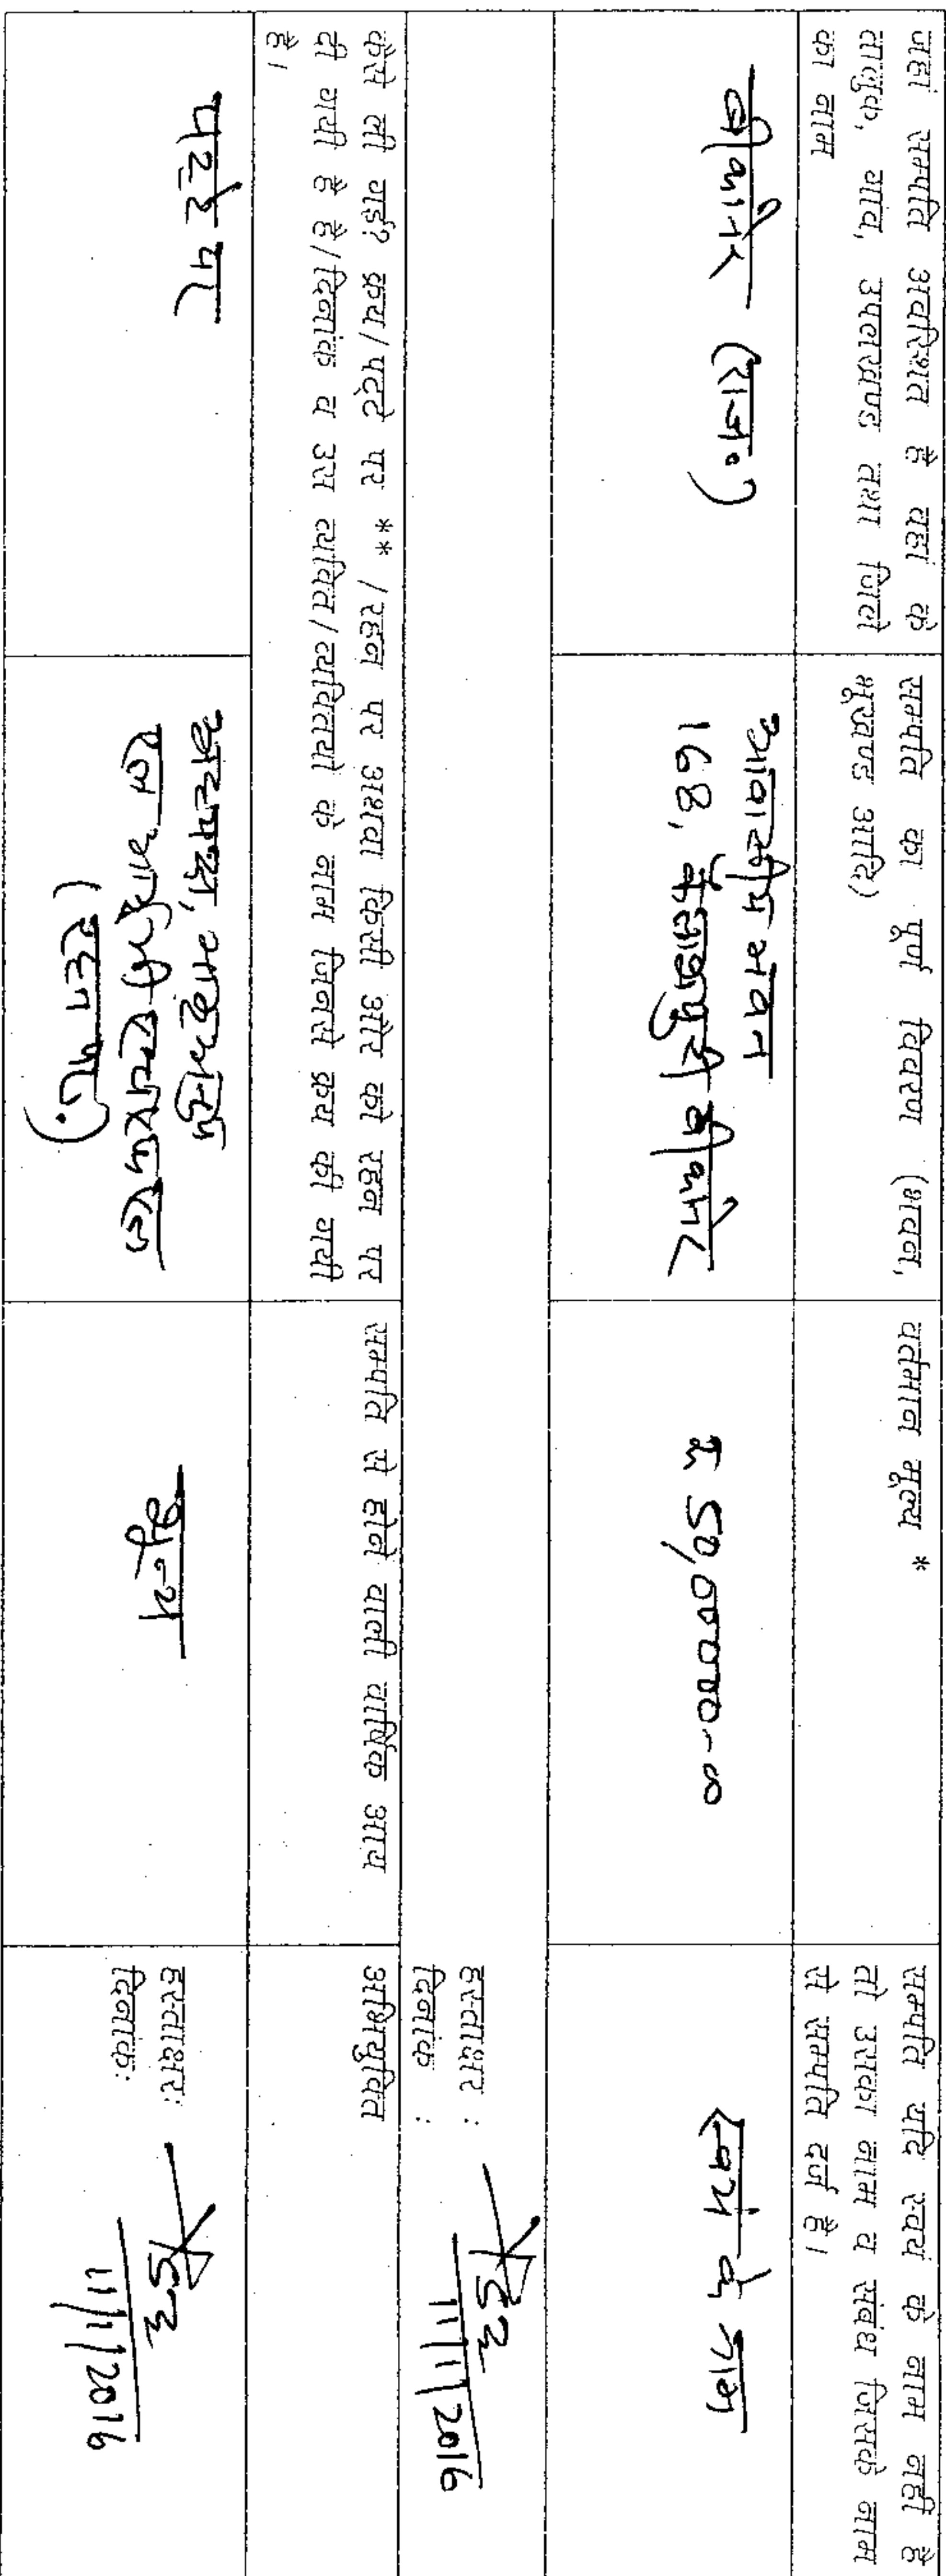 जहां सम्पति अवस्थित है वहां के
तालुक, गांव, उपलखण्ड तथा जिले
का नाम
सम्पति का पूर्ण विवरण (भवन,
भूखण्ड आदि)
वर्तमान मूल्य *
सम्पति यदि स्वयं के नाम नही है
तो उसका नाम व संबंध जिसके नाम
से सम्पति दर्ज है।
बीकानेर (राज०)
आवासीय भवन
168, कैलाशपुरी बीकानेर
रू 50,00000-00
स्वयं के नाम
हस्ताक्षर :
दिनांक :
11/1/2016
कैसे ली गई? क्रय/पट्टे पर ** /रहन पर अथवा किसी और को रहन पर
दी गयी है है/दिनांक व उस व्यक्ति/व्यक्तियों के नाम जिनसे क्रय की गयी
है।
सम्पति से होने वाली वार्षिक आय
अभियुक्ति
पट्टे पर
(रहन पर)
शून्य
हस्ताक्षर:
दिनांक:
11/1/2016